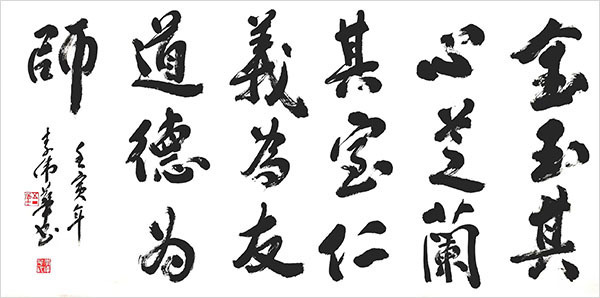 金玉其
心芝蘭
其室仁
義為友
道德為
師
壬寅年
李衛華书